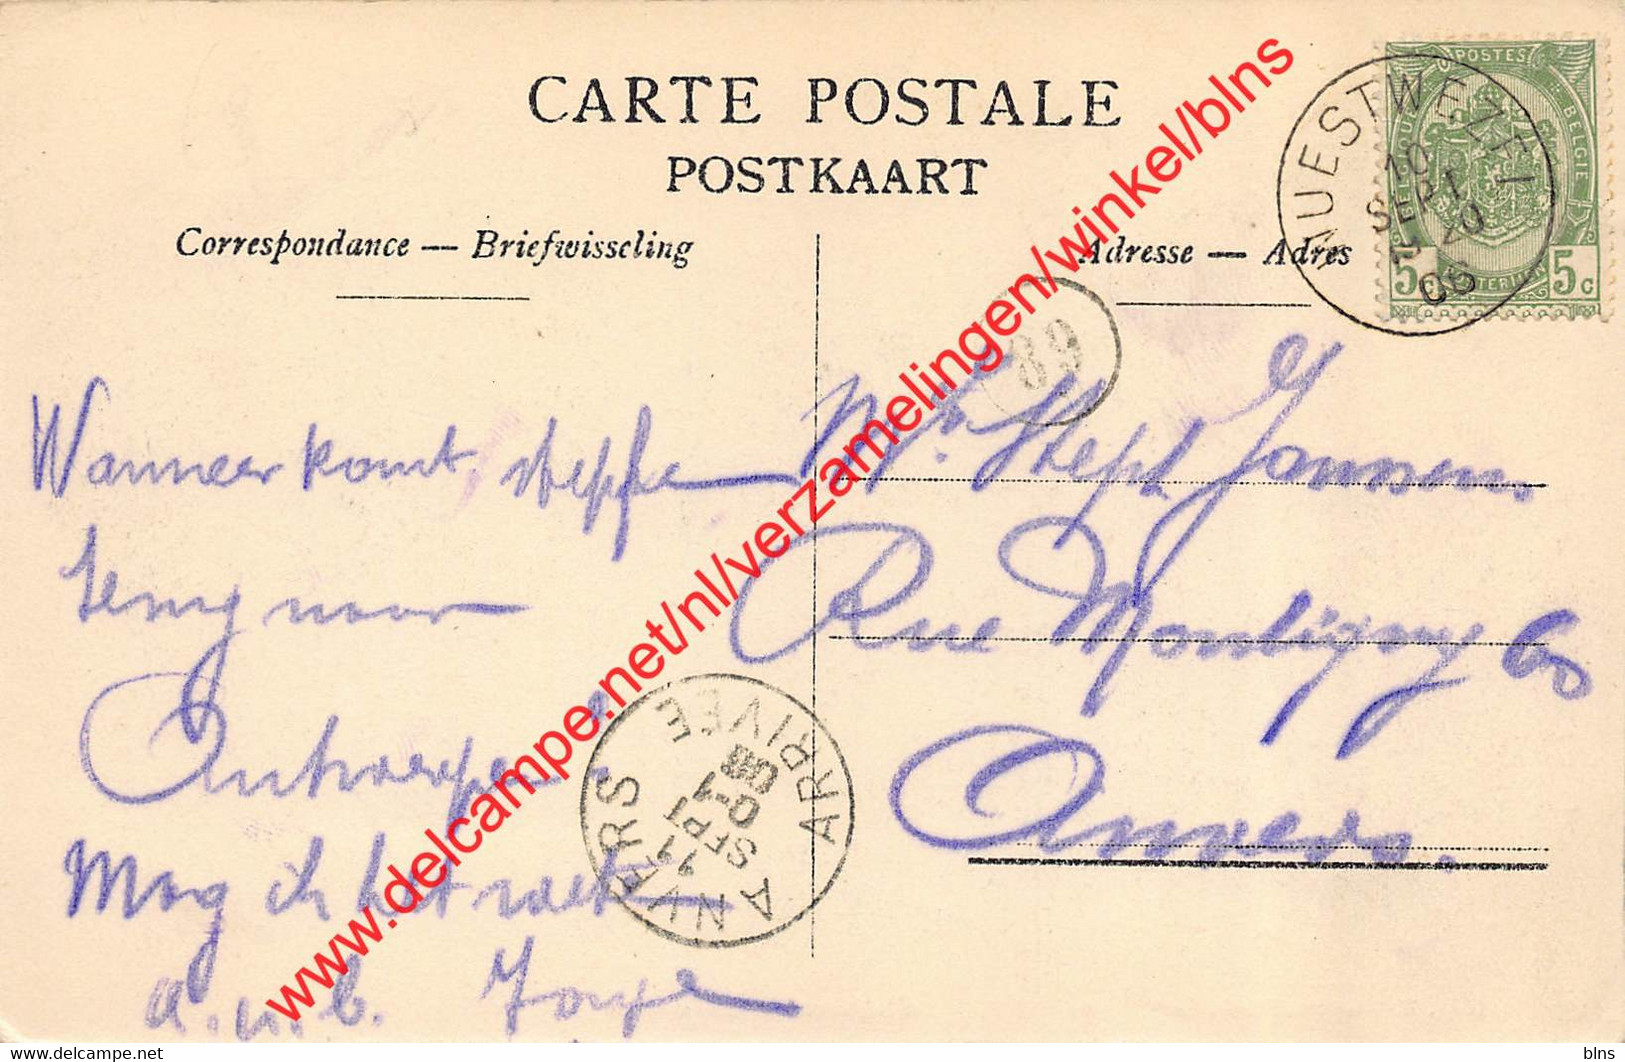 CARTE POSTALE
POSTKAART
Correspondance — Briefwisseling
Adresse — Adres
POSTES
BELGIE
5c 5c
WUESTWEZEL
10
SEPT
06
89
Wanneer komt steffe
terug naar
Antwerpen
Mog ik het weten
a.u.b.
Mr. Steph Janssens
Rue Montigny 60
Anvers.
ANVERS
11
SEPT
ARRIVEE
www.delcampe.net/nl/verzamelingen/winkel/blns
© delcampe.net
blns